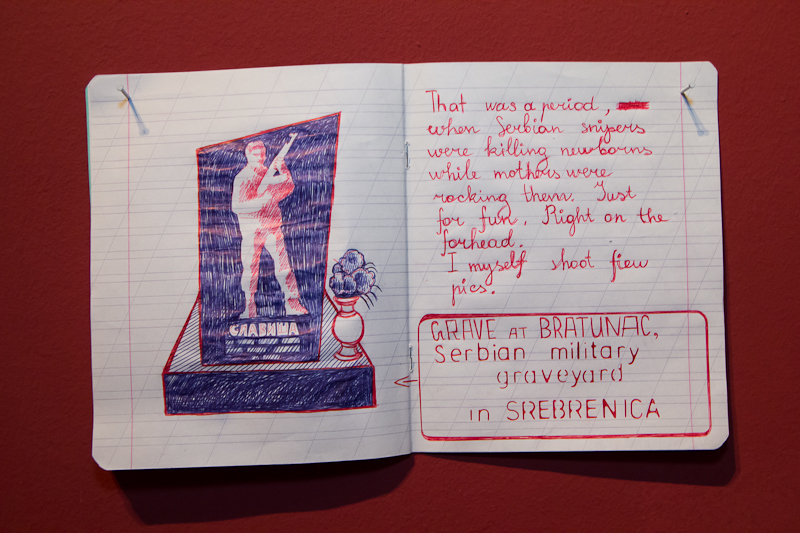 СЛАВИША
That was a period,
when Serbian snipers
were killing newborns
while mothers were
rocking them. Just
for fun. Right on the
forhead.
I myself shoot fiew
pics.
GRAVE AT BRATUNAC,
Serbian military
graveyard
in SREBRENICA